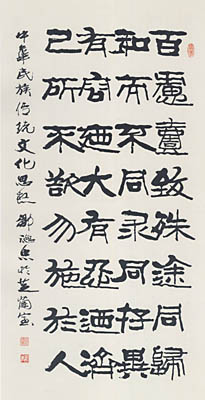 百慮壹致殊途同歸
和而不同求同存異
有容迺大有忍迺濟
己所不欲勿施於人
中華民族传统文化思想